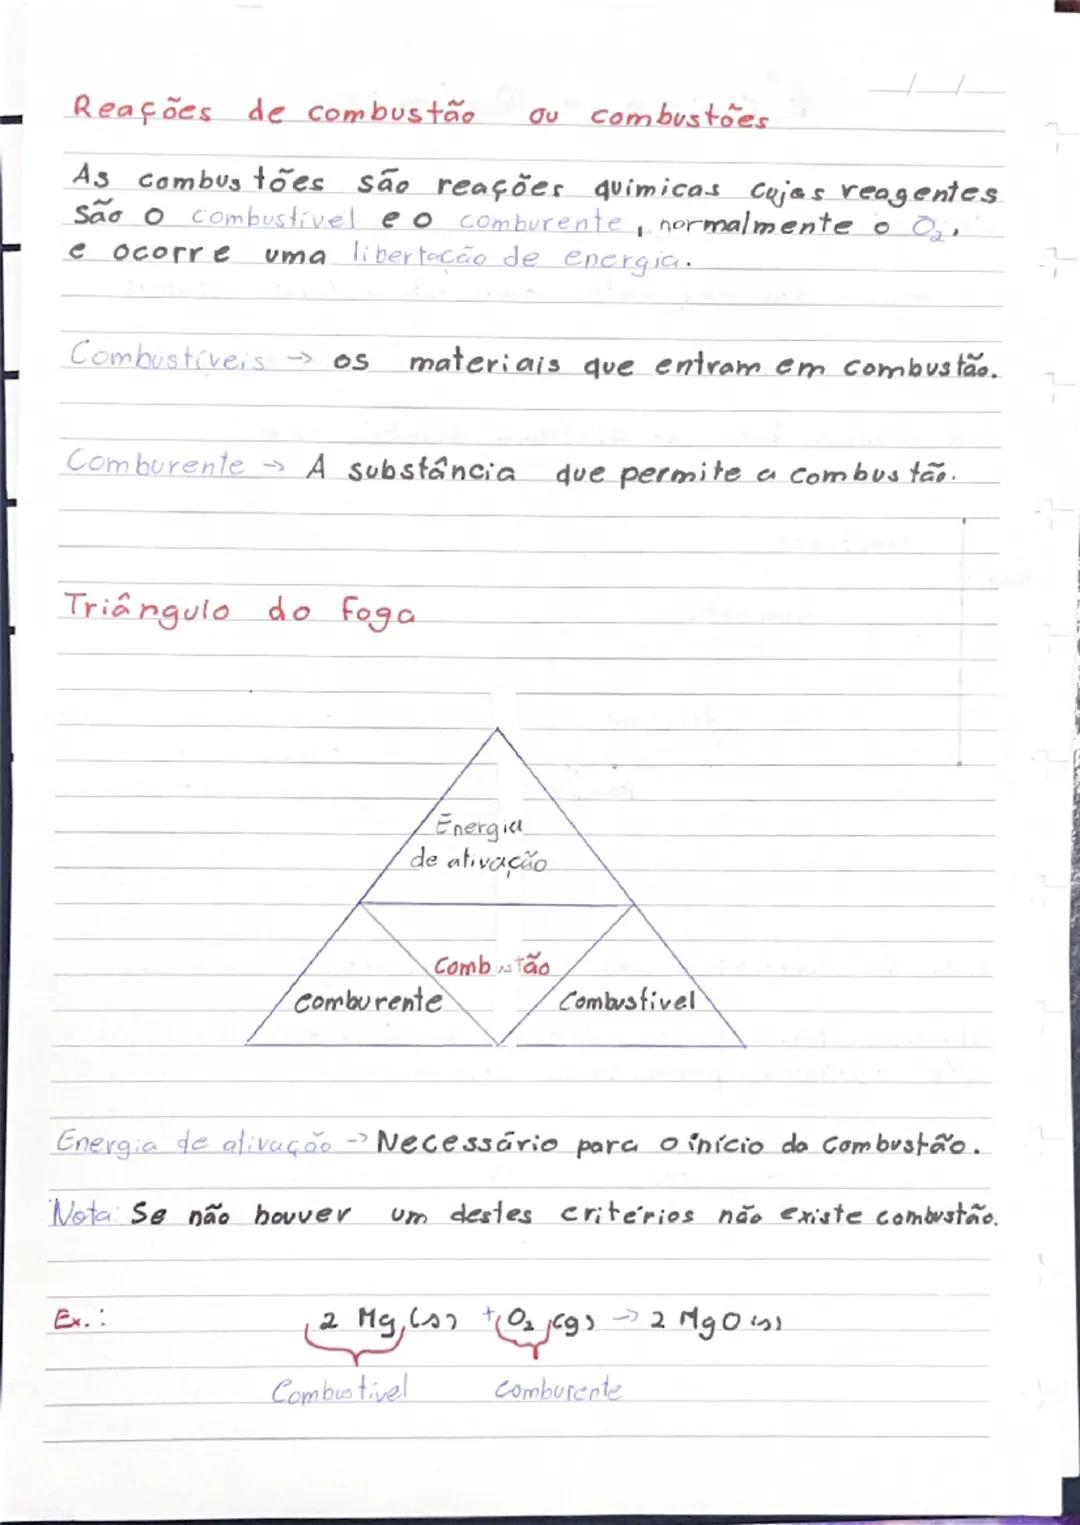 Reações de combustão ou combustões
As combustões são reações químicas cujos reagentes
são o combustível e o comburente, normalmente o O₂,
e ocorre uma libertação de energia.
Combustíveis → os materiais que entram em combustão.
Comburente → A substância que permite a combustão.
Triângulo do fogo
Energia
de ativação
Combustão
comburente Combustível
Energia de ativação → Necessário para o início da combustão.
Nota: Se não houver um destes critérios não existe combustão.
Ex.: 2 Mg (s) + O₂ (g) → 2 MgO (s)
Combustível comburente